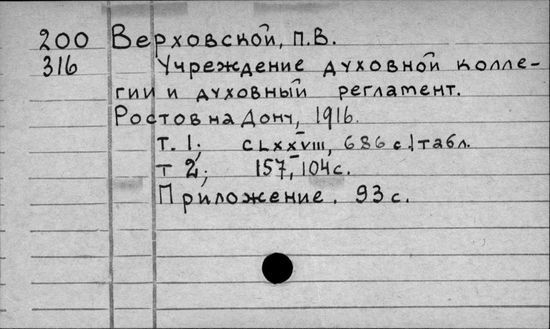 200 Верховской, П.В.
316 Учреждение духовной колле-
гии и духовный регламент.
Ростов на Дону, 1916.
Т. 1; CLXXVIII, 686 с. 1 табл.
Т 2; 157, 104 с.
Приложение. 93 с.